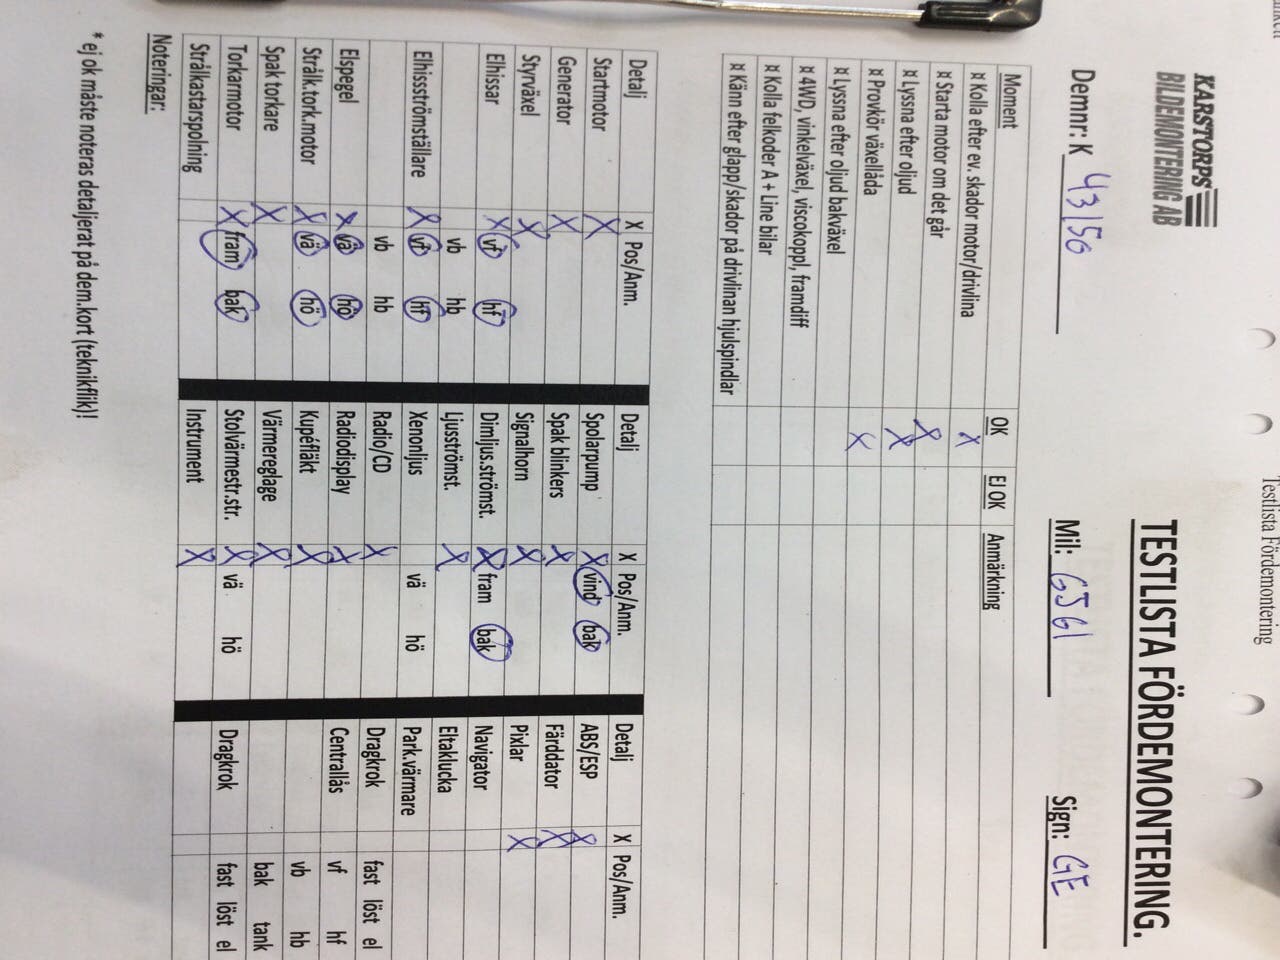 Testlista Fördemontering
KARSTORPS
BILDEMONTERING AB
TESTLISTA FÖRDEMONTERING.
Demnr: K 43156 Mil: GJ61 Sign: GE
Moment OK EJ OK Anmärkning
¤ Kolla efter ev. skador motor/drivlina X
¤ Starta motor om det går X
¤ Lyssna efter oljud X
¤ Provkör växellåda X
¤ Lyssna efter oljud bakväxel
¤ 4WD, vinkelväxel, viscokoppl, framdiff
¤ Kolla felkoder A + Line bilar
¤ Känn efter glapp/skador på drivlinan hjulspindlar
Detalj X Pos/Anm. Detalj X Pos/Anm. Detalj X Pos/Anm.
Startmotor X Spolarpump X vind bak ABS/ESP X
Generator X Spak blinkers X Färddator X
Styrväxel X Signalhorn X Pixlar X
Elhissar X vf hf Dimljus.strömst. X fram bak Navigator
vb hb Ljusströmst. X Eltaklucka
Elhissströmställare X vf hf Xenonljus vä hö Park.värmare
vb hb Radio/CD X Dragkrok fast löst el
Elspegel X vä hö Radiodisplay X Centrallås vf hf
Strålk.tork.motor X vä hö Kupéfläkt X vb hb
Spak torkare X Värmereglage X bak tank
Torkarmotor X fram bak Stolvärmestr.str. X vä hö Dragkrok fast löst el
Strålkastarspolning Instrument X
Noteringar:
* ej ok måste noteras detaljerat på dem.kort (teknikflik)!